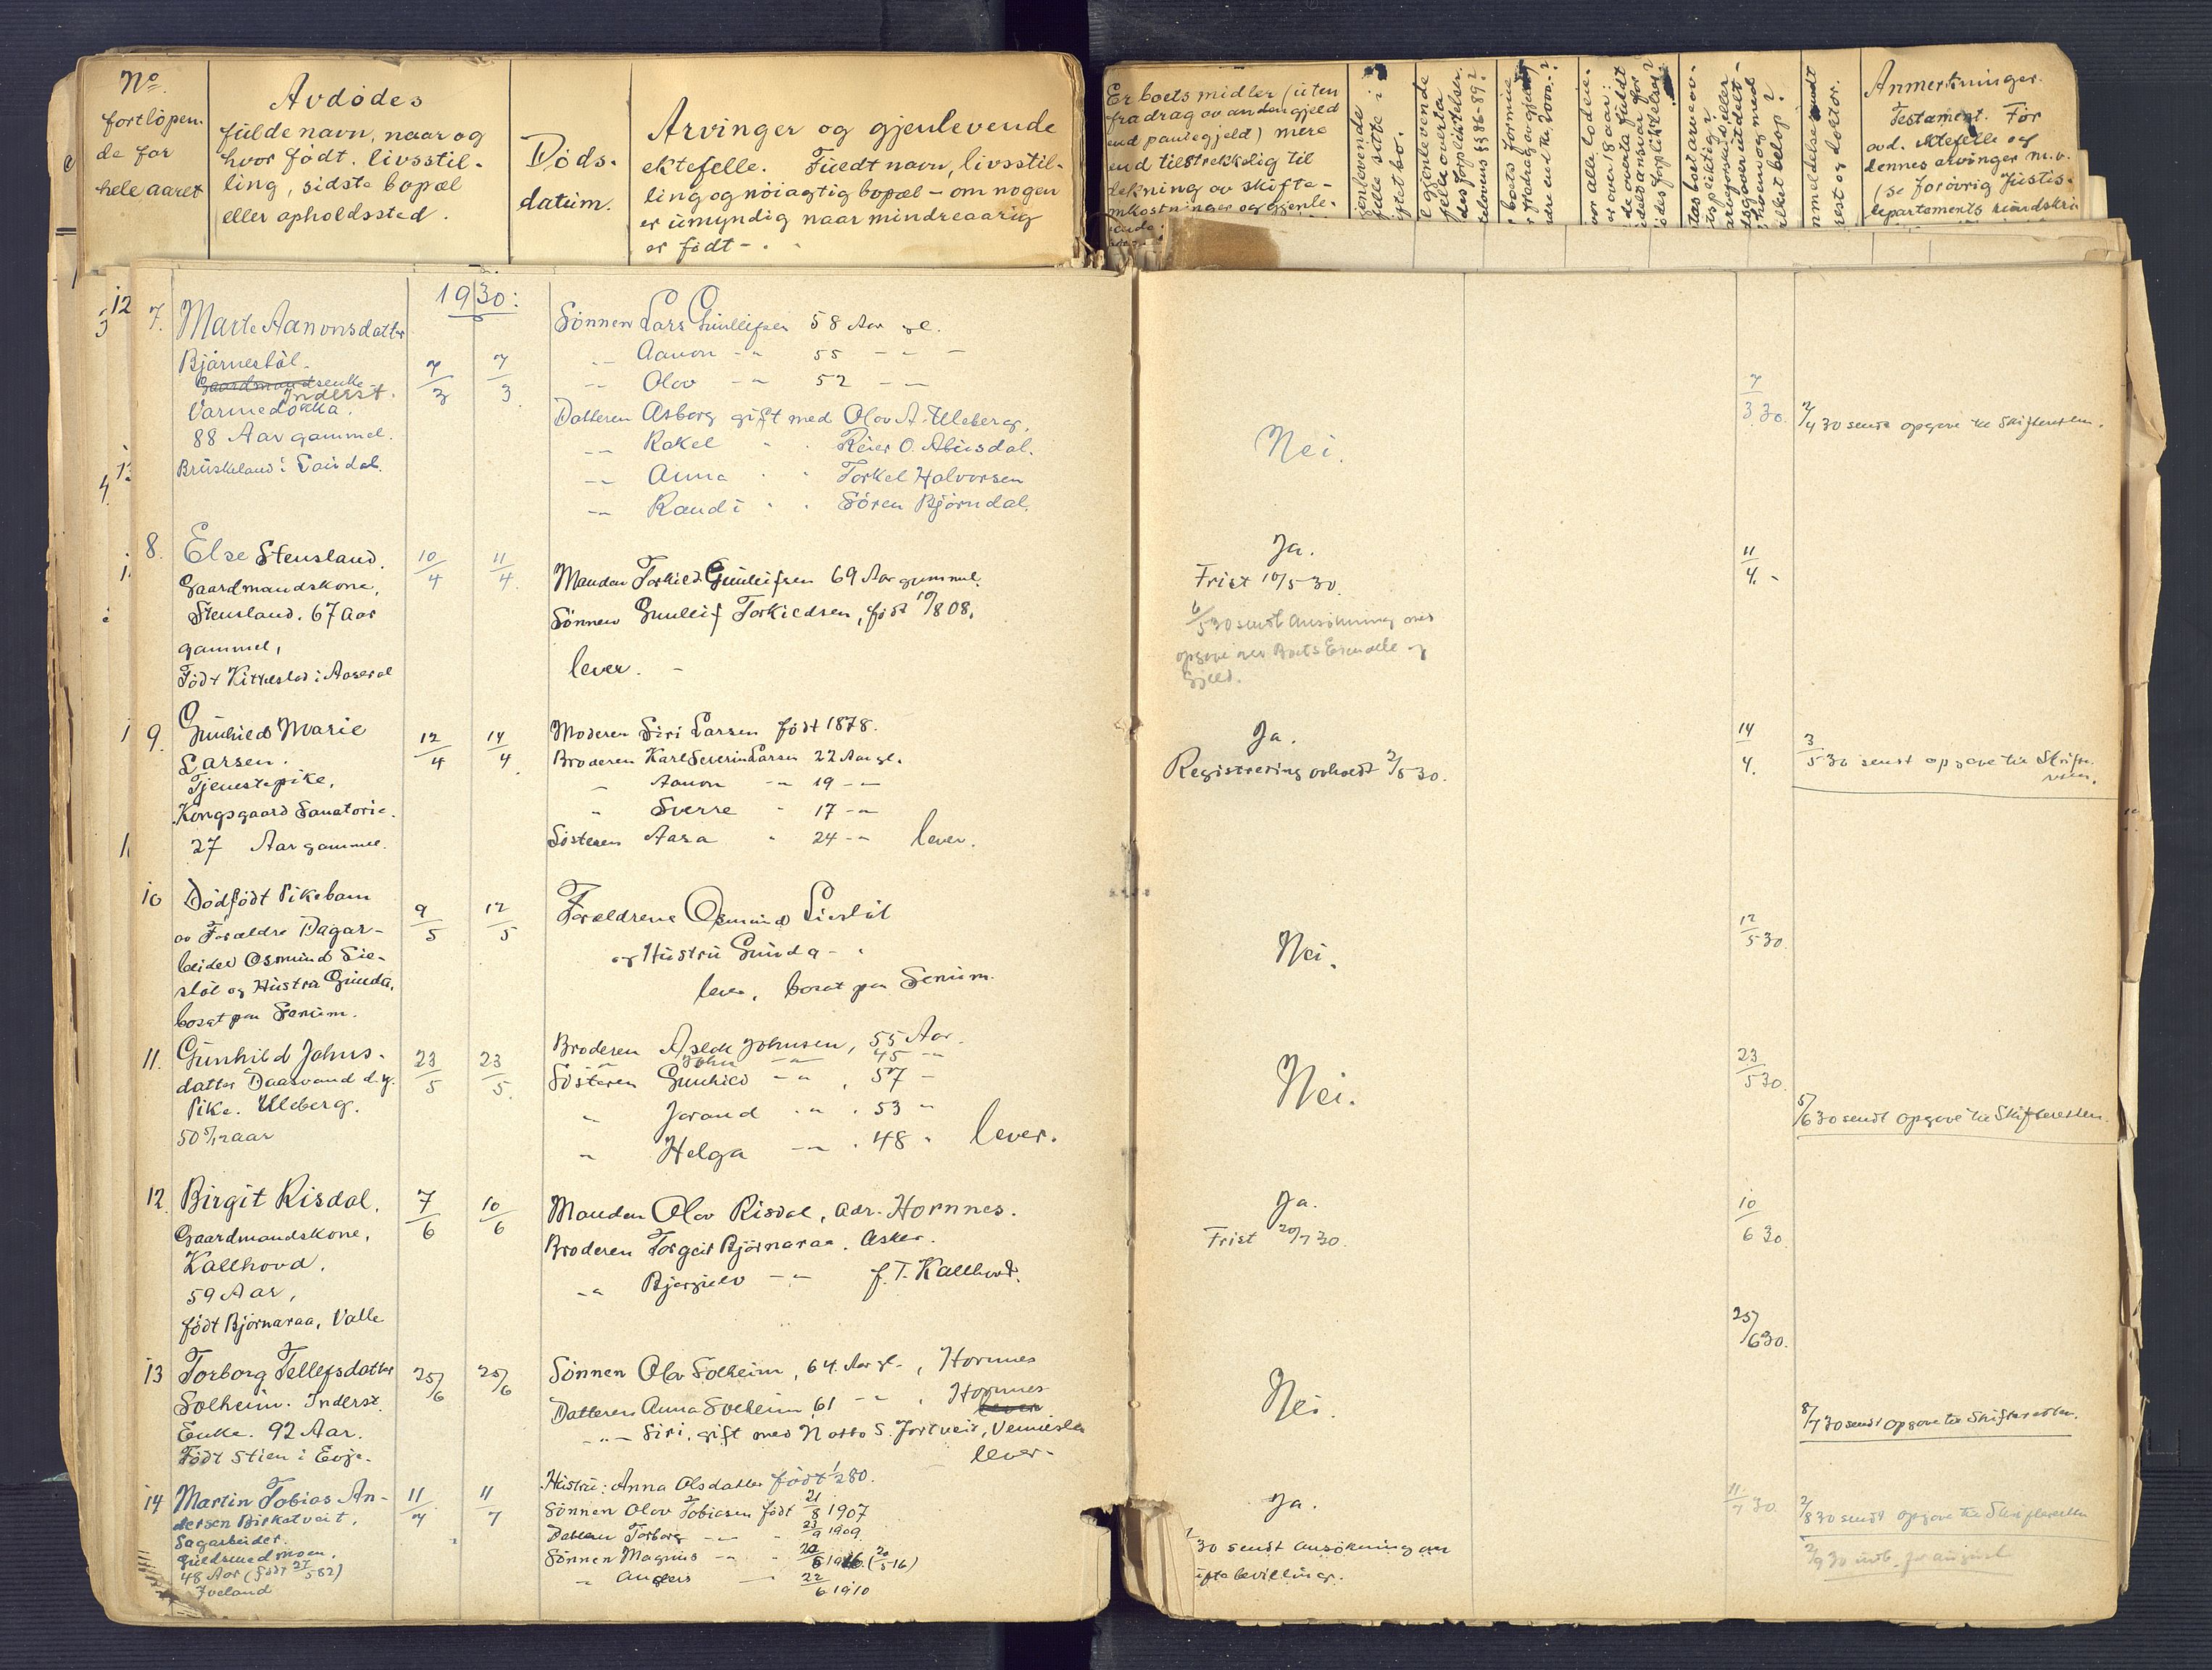 No.
fortløpen-
de for
hele aaret
Avdødes
fulde navn, naar og
hvor født. livsstil-
ling, sidste bopæl
eller opholdssted.
Døds-
datum.
Arvinger og gjenlevende
ektefelle. Fuldt navn, livsstil-
ling og nøiagtig bopæl - om nogen
er umyndig naar mindreaarig
er født -.
Er boets midler (uten
fradrag av anden gjeld
end pantegjeld) mere
end tilstrekkelig til
dekning av skifte-
omkostninger og gjenle-
Anmerkninger.
Testament. Før
avd. ektefelle og
dennes arvinger m.v.
(se forøvrig Justis-
departements rundskri
1930:
7. Marte Aanonsdatter
Bjørnestøl.
Gaardmandsenke
Inderst.
Varmedokka.
88 Aar gammel.
Bruskeland i Laudal.
7/3 7/3
Sønnen Lars Gunleifsen 58 Aar gl.
-"- Aanon -"- 55 - " -
-"- Olov -"- 52 - " -
Datteren Asborg gift med Olov A. Uleberg.
-"- Rakel " " Reier O. Abusdal.
-"- Anna " " Torkel Halvorsen
-"- Randi " " Søren Bjørndal.
Nei.
7/3 30.
2/4 30 sendt opgave til Skifteretten.
8. Else Stensland.
Gaardmandskone,
Stensland. 67 Aar
gammel,
Født Kittelsland i Aaseral
10/4 11/4
Manden Torkild Gunleifsen 69 Aar gammel.
Sønnen Gunleif Torkildsen, født 19/8 08.
lever. -
Ja.
Frist 10/5 30.
6/5 30 sendt Ansøkning med
opgave over Boets Eiendele og
Gjeld.
11/4. -
9. Gunhild Marie
Larsen.
Tjenestepike,
Kongsgaard Sanatorie.
27 Aar gammel.
12/4 14/4
Moderen Siri Larsen født 1878.
Broderen Karl Severin Larsen 22 Aar gl.
" Aanon -"- 19 -"-
" Sverre " 17 -"-
Søsteren Aasa " 24 -"- lever.
Ja.
Registrering avholdt 2/5 30.
14/4.
3/5 30 sendt opgave til Skifte-
retten.
10 Dødfødt Pikebarn
av Forældre Dagar-
beider Osmund Lie-
støl og Hustru Gunda,
bosat paa Senum.
9/5 12/5
Forældrene Osmund Liestøl
og Hustru Gunda - "
lever, bosat paa Senum.
Nei.
12/5 30.
11. Gunhild Johns-
datter Daasvand d.y.
Pike. Uleberg.
50 5/12 aar
23/5 23/5.
Broderen Aslak Johnsen, 55 Aar.
" John -"- 45 -"-
Søsteren Gunhild -"- , 57 -
" Jorand -"- . 53 "
" Helga -"- . 48 " lever.
Nei.
23/5 30.
5/6 30 sendt opgave til Skifteretten.
12. Birgit Risdal.
Gaardmandskone,
Kallhovd.
59 Aar,
født Bjørnaraa, Valle
7/6 10/6
Manden Olov Risdal, adr. Hornnes.
Broderen Torgeir Bjørnaraa. Asker.
-"- Bjørgulv -"- f. T. Kallhovd.
Ja.
Frist 20/7 30.
10/6 30.
13 Torborg Tellefsdatter
Solheim. Inderst.
Enke. 92 Aar.
Født Stien i Evje.
25/6 25/6
Sønnen Olov Solheim, 64 Aar gl., Hornnes
Datteren Anna Solheim, 61 -"- , Hornnes
-"- Siri, gift med Notto S. Jortveit, Vennesla
lever -
Nei.
25/6 30.
8/7 30 sendt opgave til Skifteretten.
14 Martin Tobias An-
dersen Birketveit.
Sagarbeider.
Guldsmedmoen,
48 Aar (født 27/5 82)
Iveland
11/7 11/7
Hustru: Anna Olsdatter født 1/2 80.
Sønnen Olov Tobiasen født 21/8 1907
Datteren Torborg -"- " 23/9 1909.
Sønnen Magnus -"- " 20/5 1916. (20/5-16)
" Anders -"- 22/6 1910
Ja.
30 sendt ansøkning om
iftebevilling.
11/7 30.
2/8 30 sendt opgave til Skifteretten
2/9 30 indb. for august